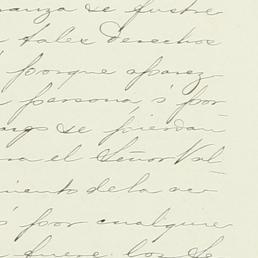 anza se frustre
tales derechos
porque aparez
persona ó por
se pierdan
ra el Señor Val
miento de la ve
ó por cualquiera
fuere los de